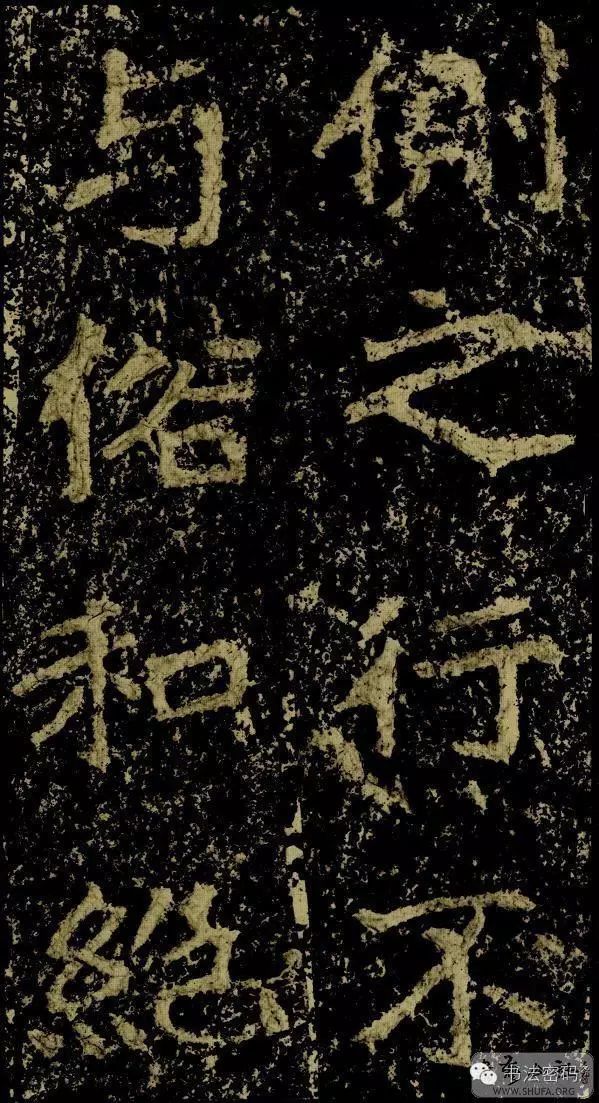 側之行不
与俗和絶
书法密码
WWW.SHUFA.ORG